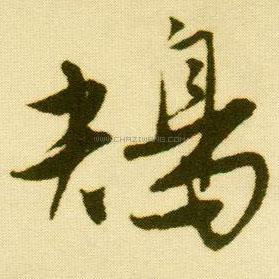 鵠
WWW.CHAZIWANG.COM